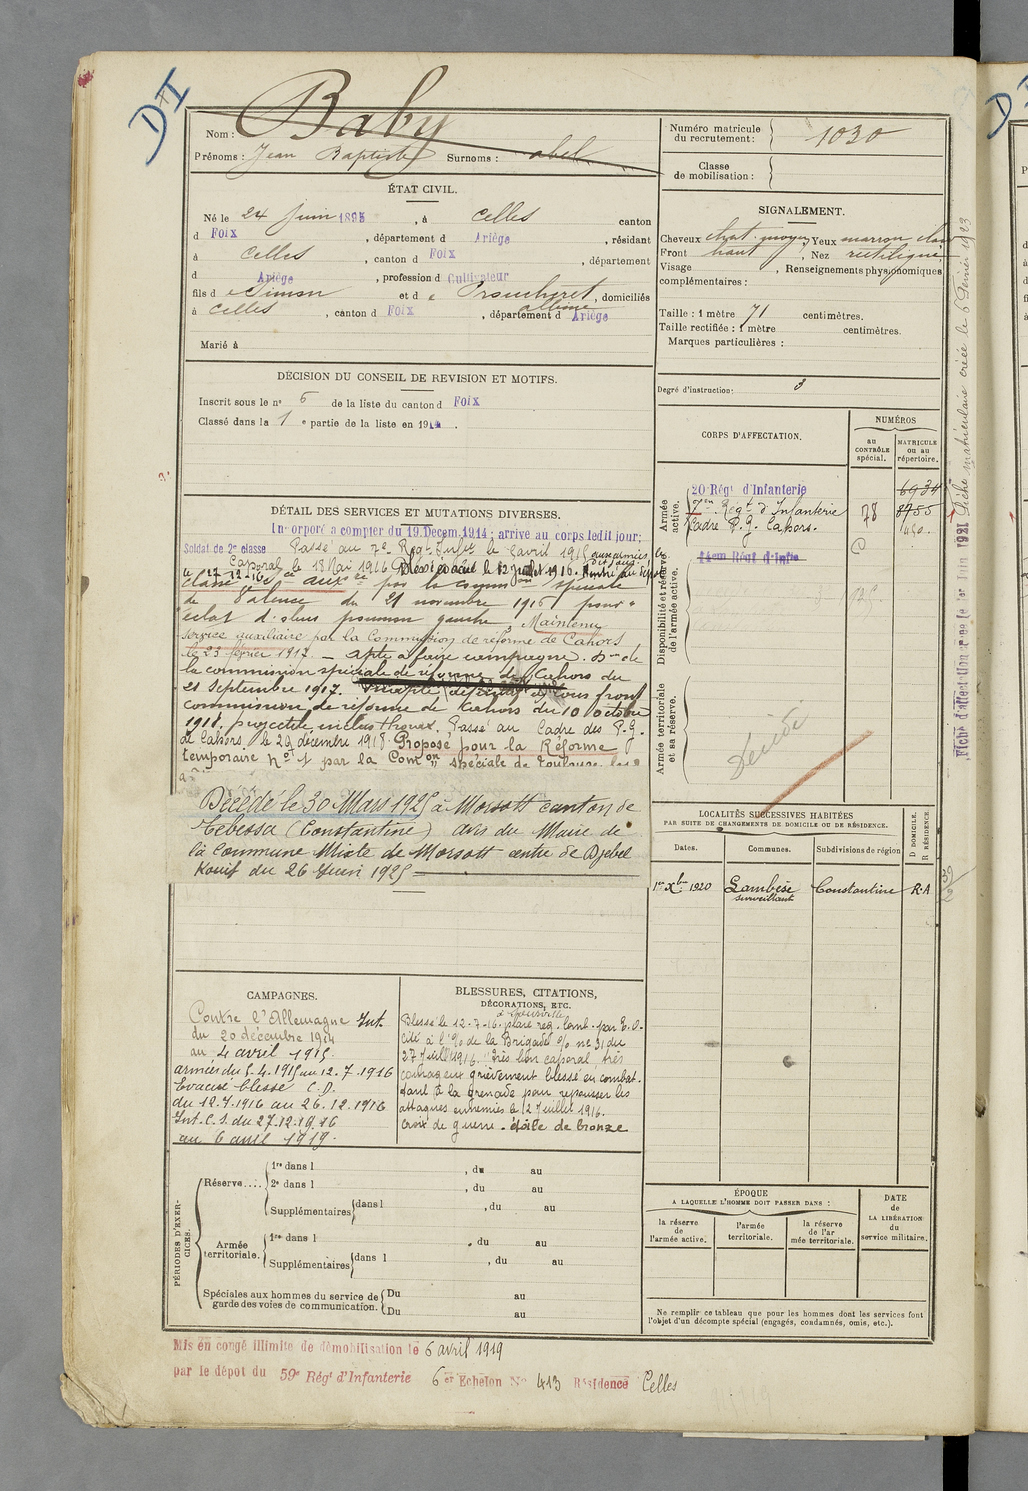 DII
Nom : Baby
Prénoms : Jean Baptiste Surnoms : abel
Numéro matricule du recrutement : 1030
Classe de mobilisation :
ÉTAT CIVIL.
Né le 24 Juin 1895, à Celles canton
d Foix, département d Ariège, résidant
à Celles, canton d Foix, département
d Ariège, profession d Cultivateur
fils d e Simon et d e Albine, domiciliés
à Celles, canton d Foix, département d Ariège
Marié à
SIGNALEMENT.
Cheveux chat. moyen Yeux marron clair
Front haut, Nez rectiligne
Visage, Renseignements physionomiques
complémentaires :
Taille : 1 mètre 71 centimètres.
Taille rectifiée : 1 mètre centimètres.
Marques particulières :
Degré d'instruction : 3
DÉCISION DU CONSEIL DE REVISION ET MOTIFS.
Inscrit sous le n° 6 de la liste du canton d Foix
Classé dans la 1 e partie de la liste en 191
CORPS D'AFFECTATION.
NUMÉROS
au CONTRÔLE spécial.
MATRICULE ou au répertoire.
Armée active.
20 Régt d'Infanterie 6934
7en Régt d'Infanterie 78 8755
Cadre P.G. Cahors.
Disponibilité et réserve de l'armée active.
14em Régt d'Infie
Armée territoriale et sa réserve.
Décédé
DÉTAIL DES SERVICES ET MUTATIONS DIVERSES.
Incorporé à compter du 19 Décem. 1914; arrivé au corps ledit jour;
Soldat de 2e classe Passé au 7e Rég. Infie le 5 avril 1915 aux armées
Caporal le 18 Mai 1916
le 27-12-16
classé sce auxre par la common spéciale
de Valence du 21 novembre 1916 pour "
éclat d'obus poumon gauche". Maintenu
service auxiliaire par la Commission de réforme de Cahors
le 23 février 1917. — apte à faire campagne. Don de
la commission spéciale de réforme de Cahors du
21 Septembre 1917. Inapte définitif à tous front
commission de réforme de Cahors du 10 octobre
1918. projectile inclus thorax. Passé au Cadre des P.G.
de Cahors, le 29 décembre 1918. Proposé pour la Réforme
temporaire N° 1 par la Comon spéciale de Toulouse
Décédé le 30 Mars 1925 à Morsott canton de
Tebessa (Constantine) avis du Maire de
la Commune Mixte de Morsott centre de Djebel
Kouif du 26 Juin 1925
LOCALITÉS SUCCESSIVES HABITÉES
PAR SUITE DE CHANGEMENTS DE DOMICILE OU DE RÉSIDENCE.
Dates. Communes. Subdivisions de région D DOMICILE. R RÉSIDENCE
1er Xbre 1920 Lambèse surveillant Constantine R.A
CAMPAGNES.
Contre l'Allemagne Int.
du 20 décembre 1914
au 4 avril 1915.
armées du 5.4.1915 au 12.7.1916
Evacué blessé C.D.
du 12.7.1916 au 26.12.1916
Int. C.S. du 27.12.1916
au 6 avril 1919.
BLESSURES, CITATIONS,
DÉCORATIONS, ETC.
Blessé le 12-7-16. plaie reg. lomb. par E.O.
cité à l'% de la Brigade % n° 31 du
27 Juillet 1916. "Très bon caporal, très
courageux grièvement blessé en combat-
tant à la grenade pour repousser les
attaques ennemies le 12 Juillet 1916.
Croix de guerre - étoile de bronze
PÉRIODES D'EXERCICES.
Réserve....
1re dans l , du au
2e dans l , du au
Supplémentaires dans l , du au
Armée territoriale.
1re dans l , du au
Supplémentaires dans l , du au
Spéciales aux hommes du service de garde des voies de communication.
Du au
Du au
ÉPOQUE
A LAQUELLE L'HOMME DOIT PASSER DANS :
la réserve de l'armée active.
l'armée territoriale.
la réserve de l'armée territoriale.
DATE de LA LIBÉRATION du service militaire.
Ne remplir ce tableau que pour les hommes dont les services font
l'objet d'un décompte spécial (engagés, condamnés, omis, etc.).
Mis en congé illimité de démobilisation le 6 avril 1919
par le dépôt du 59e Régt d'Infanterie 6 er Echelon N° 413 Résidence Celles
Fiche d'affectation créée le 1er Juin 1921 Fiche matriculaire créée le 6 Février 1923